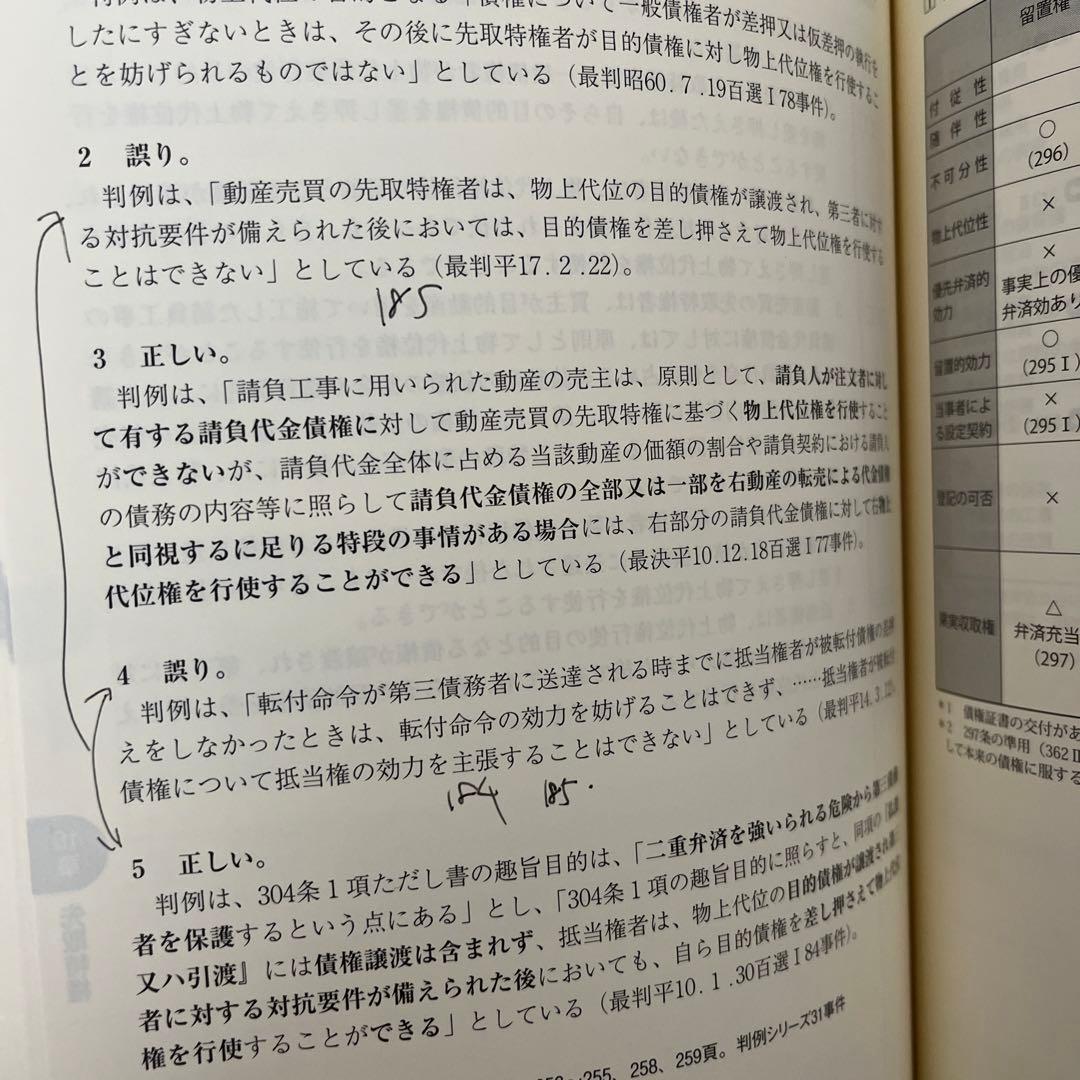 債権について一般債権者が差押又は仮差押の執行を
したにすぎないときは、その後に先取特権者が目的債権に対し物上代位権を行使するこ
とを妨げられるものではない」としている（最判昭60.7.19百選Ⅰ78事件）。
2　誤り。
判例は、「動産売買の先取特権者は、物上代位の目的債権が譲渡され、第三者に対す
る対抗要件が備えられた後においては、目的債権を差し押さえて物上代位権を行使する
ことはできない」としている（最判平17.2.22）。
185
3　正しい。
判例は、「請負工事に用いられた動産の売主は、原則として、請負人が注文者に対し
て有する請負代金債権に対して動産売買の先取特権に基づく物上代位権を行使すること
ができないが、請負代金全体に占める当該動産の価額の割合や請負契約における請負人
の債務の内容等に照らして請負代金債権の全部又は一部を右動産の転売による代金債権
と同視するに足りる特段の事情がある場合には、右部分の請負代金債権に対して右物上
代位権を行使することができる」としている（最決平10.12.18百選Ⅰ77事件）。
4　誤り。
判例は、「転付命令が第三債務者に送達される時までに抵当権者が被転付債権の差押
えをしなかったときは、転付命令の効力を妨げることはできず、……抵当権者が被転付
債権について抵当権の効力を主張することはできない」としている（最判平14.3.12）。
184　185.
5　正しい。
判例は、304条1項ただし書の趣旨目的は、「二重弁済を強いられる危険から第三債務
者を保護するという点にある」とし、「304条1項の趣旨目的に照らすと、同項の『払渡
又ハ引渡』には債権譲渡は含まれず、抵当権者は、物上代位の目的債権が譲渡され第三
者に対する対抗要件が備えられた後においても、自ら目的債権を差し押さえて物上代位
権を行使することができる」としている（最判平10.1.30百選Ⅰ84事件）。
255、258、259頁。判例シリーズ31事件
留置権
付従性
随伴性
不可分性
○
(296)
物上代位性
×
優先弁済的
効力
×
事実上の優
弁済効あり
留置的効力
○
(295Ⅰ)
当事者によ
る設定契約
×
(295Ⅰ)
登記の可否
×
果実収取権
△
弁済充当
(297)
*1　債権証書の交付があ
*2　297条の準用（362Ⅱ
して本来の債権に服する